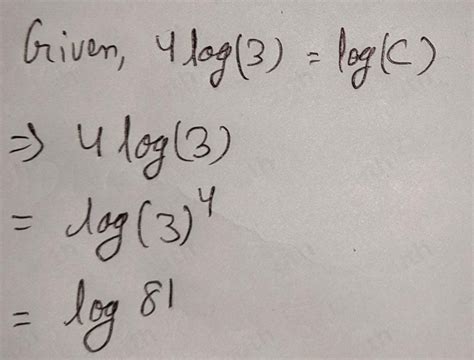 Given, 4 log(3) = log(C)
⇒ 4 log(3)
= log(3)⁴
= log 81